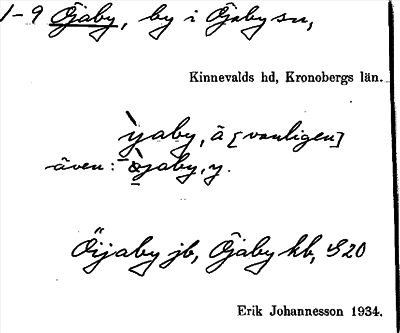 1-9 Öjaby, by i Öjaby sn,
Kinnevalds hd, Kronobergs län.
yaby, ä [vanligen]
även: öjaby, y.
Öijaby jb, Öjaby kb, 920
Erik Johannesson 1934.